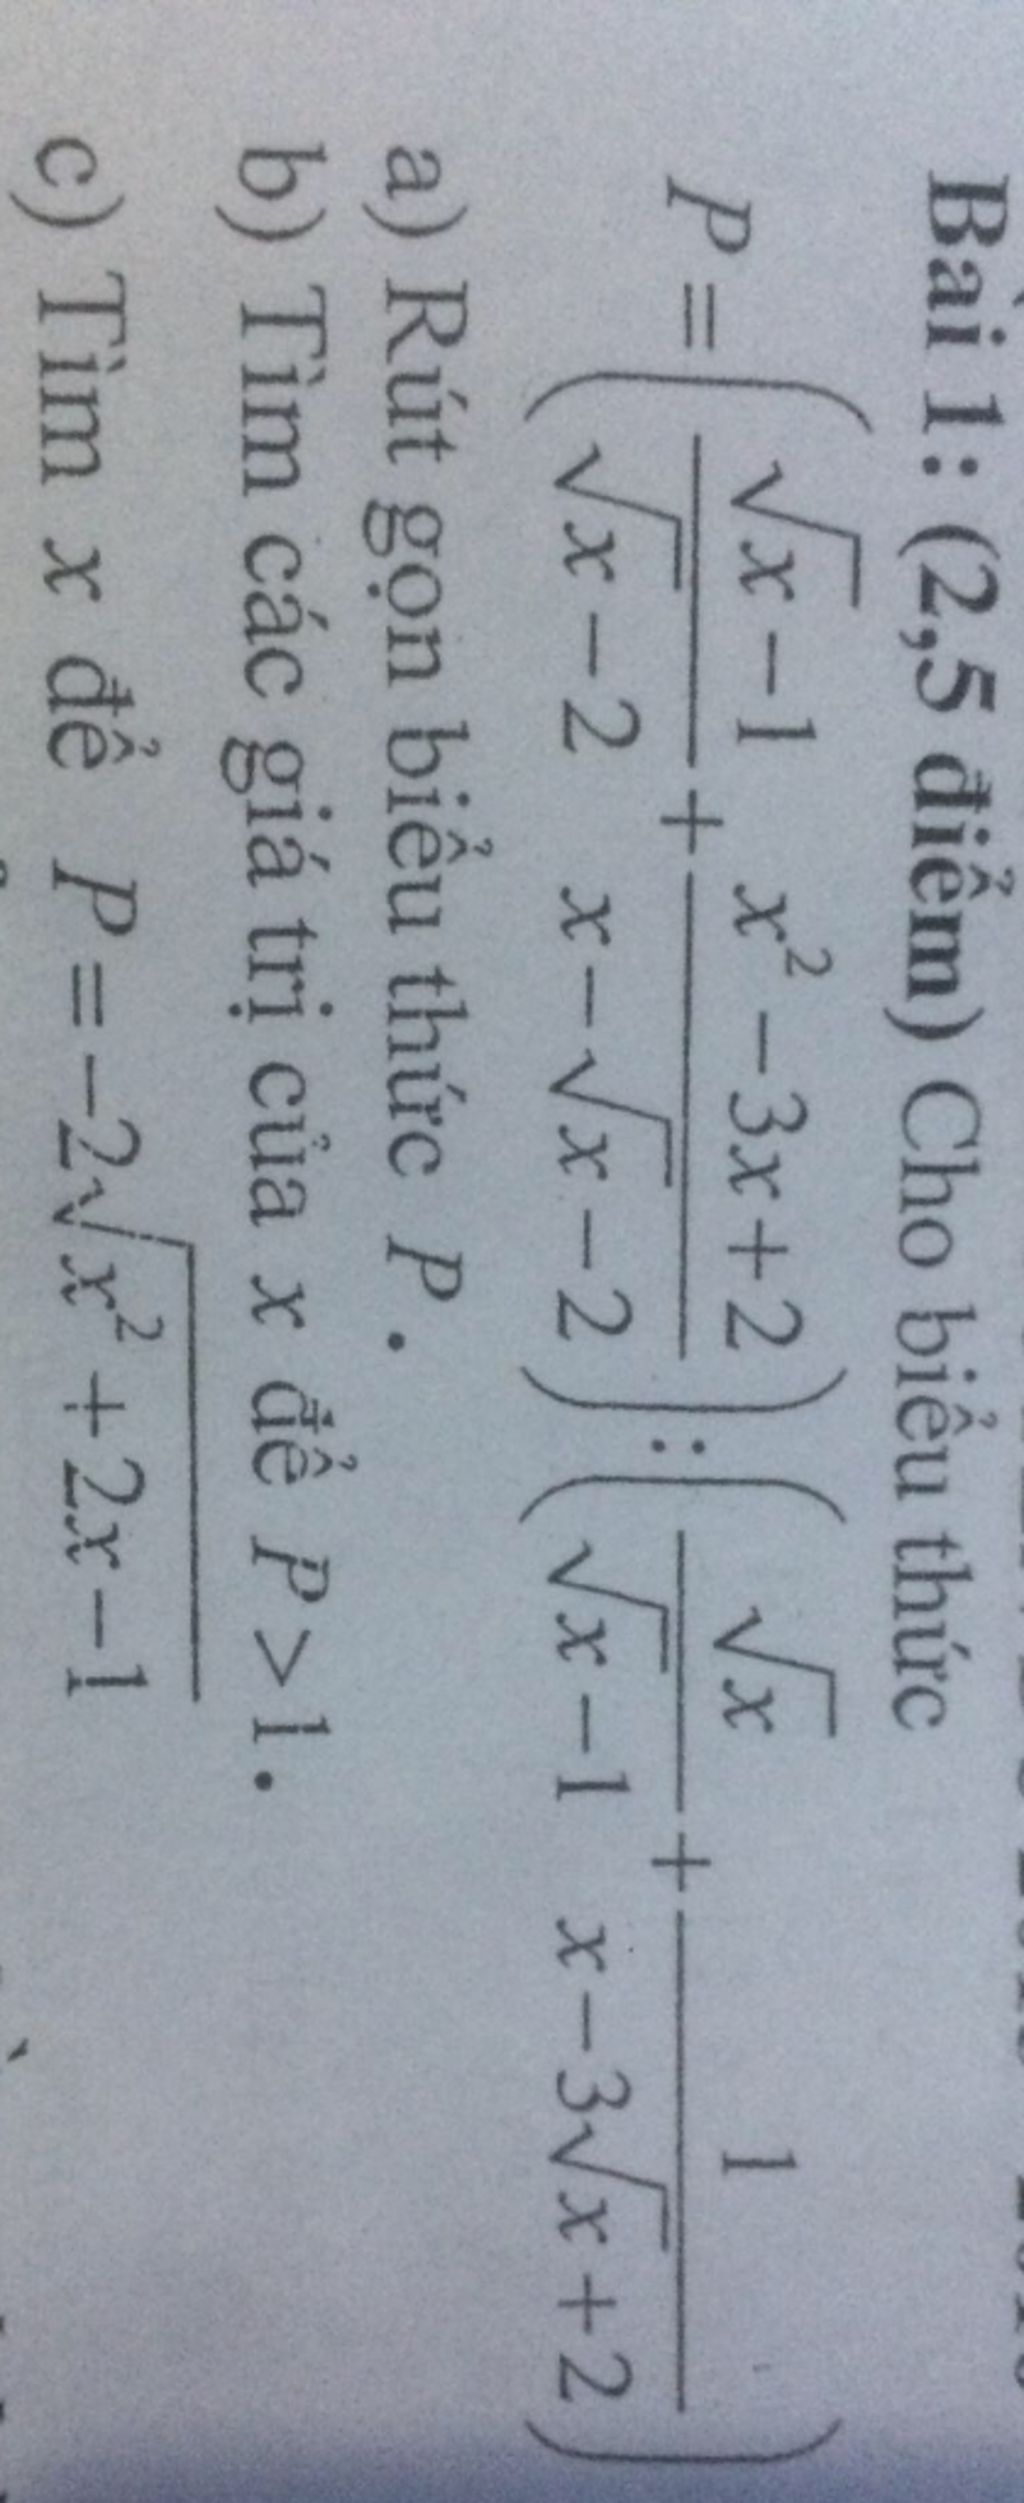 Bài 1: (2,5 điểm) Cho biểu thức
P = ( (√x − 1)/(√x − 2) + (x² − 3x + 2)/(x − √x − 2) ) : ( √x/(√x − 1) + 1/(x − 3√x + 2) )
a) Rút gọn biểu thức P.
b) Tìm các giá trị của x để P > 1.
c) Tìm x để P = −2√(x² + 2x − 1)